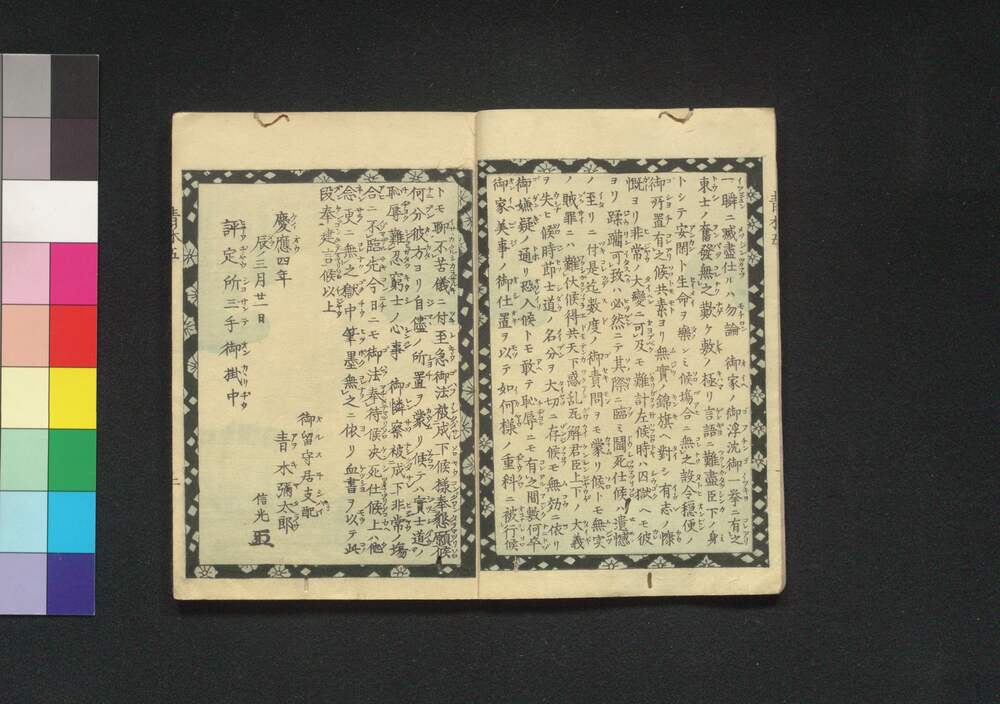 一瞬ニ滅盡仕ルハ勿論　御家ノ御浮沈御一挙ニ有之
東士ノ奮發無之歎ケ敷ノ極リ言語ニ難盡臣下ノ身
トシテ安閑ト生命ヲ樂シミ候塲合ニ無之設令穏便ノ
御所置有之候共素ヨリ無實ノ錦旗ヘ對シ有志ノ際
慨ヨリ非常ノ大變ニ可及モ難計左候時ハ囚獄ヘモ彼
ヨリ蹂躪可致ハ必然ニテ其際ニ臨ミ鬪死仕候ハ遺憾
ノ至リニ付是迄数度ノ御責問ヲモ蒙リ候トモ無実
ノ賊罪ニハ難伏候得共天下惑乱瓦解君臣上下ノ大義
ヲ失ヒ候時即士道ノ名分ヲ大切ニ存候モ無効ニ依リ
御嫌疑ノ通リ恐入候トモ敢テ恥辱ニモ有之間敷何卒
御家美事ノ御仕置ヲ以テ如何様ノ重科ニ被行候
トモ聊不苦儀ニ付至急御法被成下候様奉懇願候
何分彼方ヨリ自儘ノ所置ヲ蒙リ候テハ實士道ノ
恥辱難忍窮士ノ心事　御憐察被成下非常ノ塲
合ニ不臨先今日ニモ御法奉待候决死仕候上ハ他
念更ニ無之獄中筆墨無之ニ依リ血書ヲ以テ此
段奉建言候以上
慶應四年
辰ノ三月廿一日
御留守居支配
青木彌太郎
信光
評定所三手御掛中
青木五
二